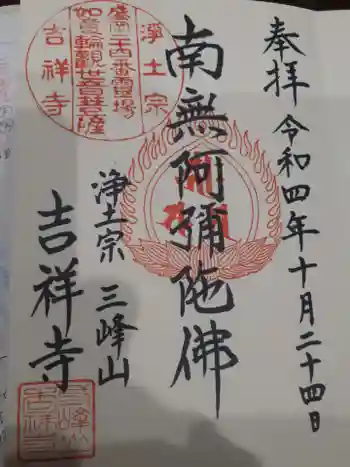 奉拝
令和四年十月二十四日
南無阿彌陀佛
浄土宗 三峰山
吉祥寺
浄土宗
盛岡三十三番霊場
如意輪観世音菩薩
吉祥寺